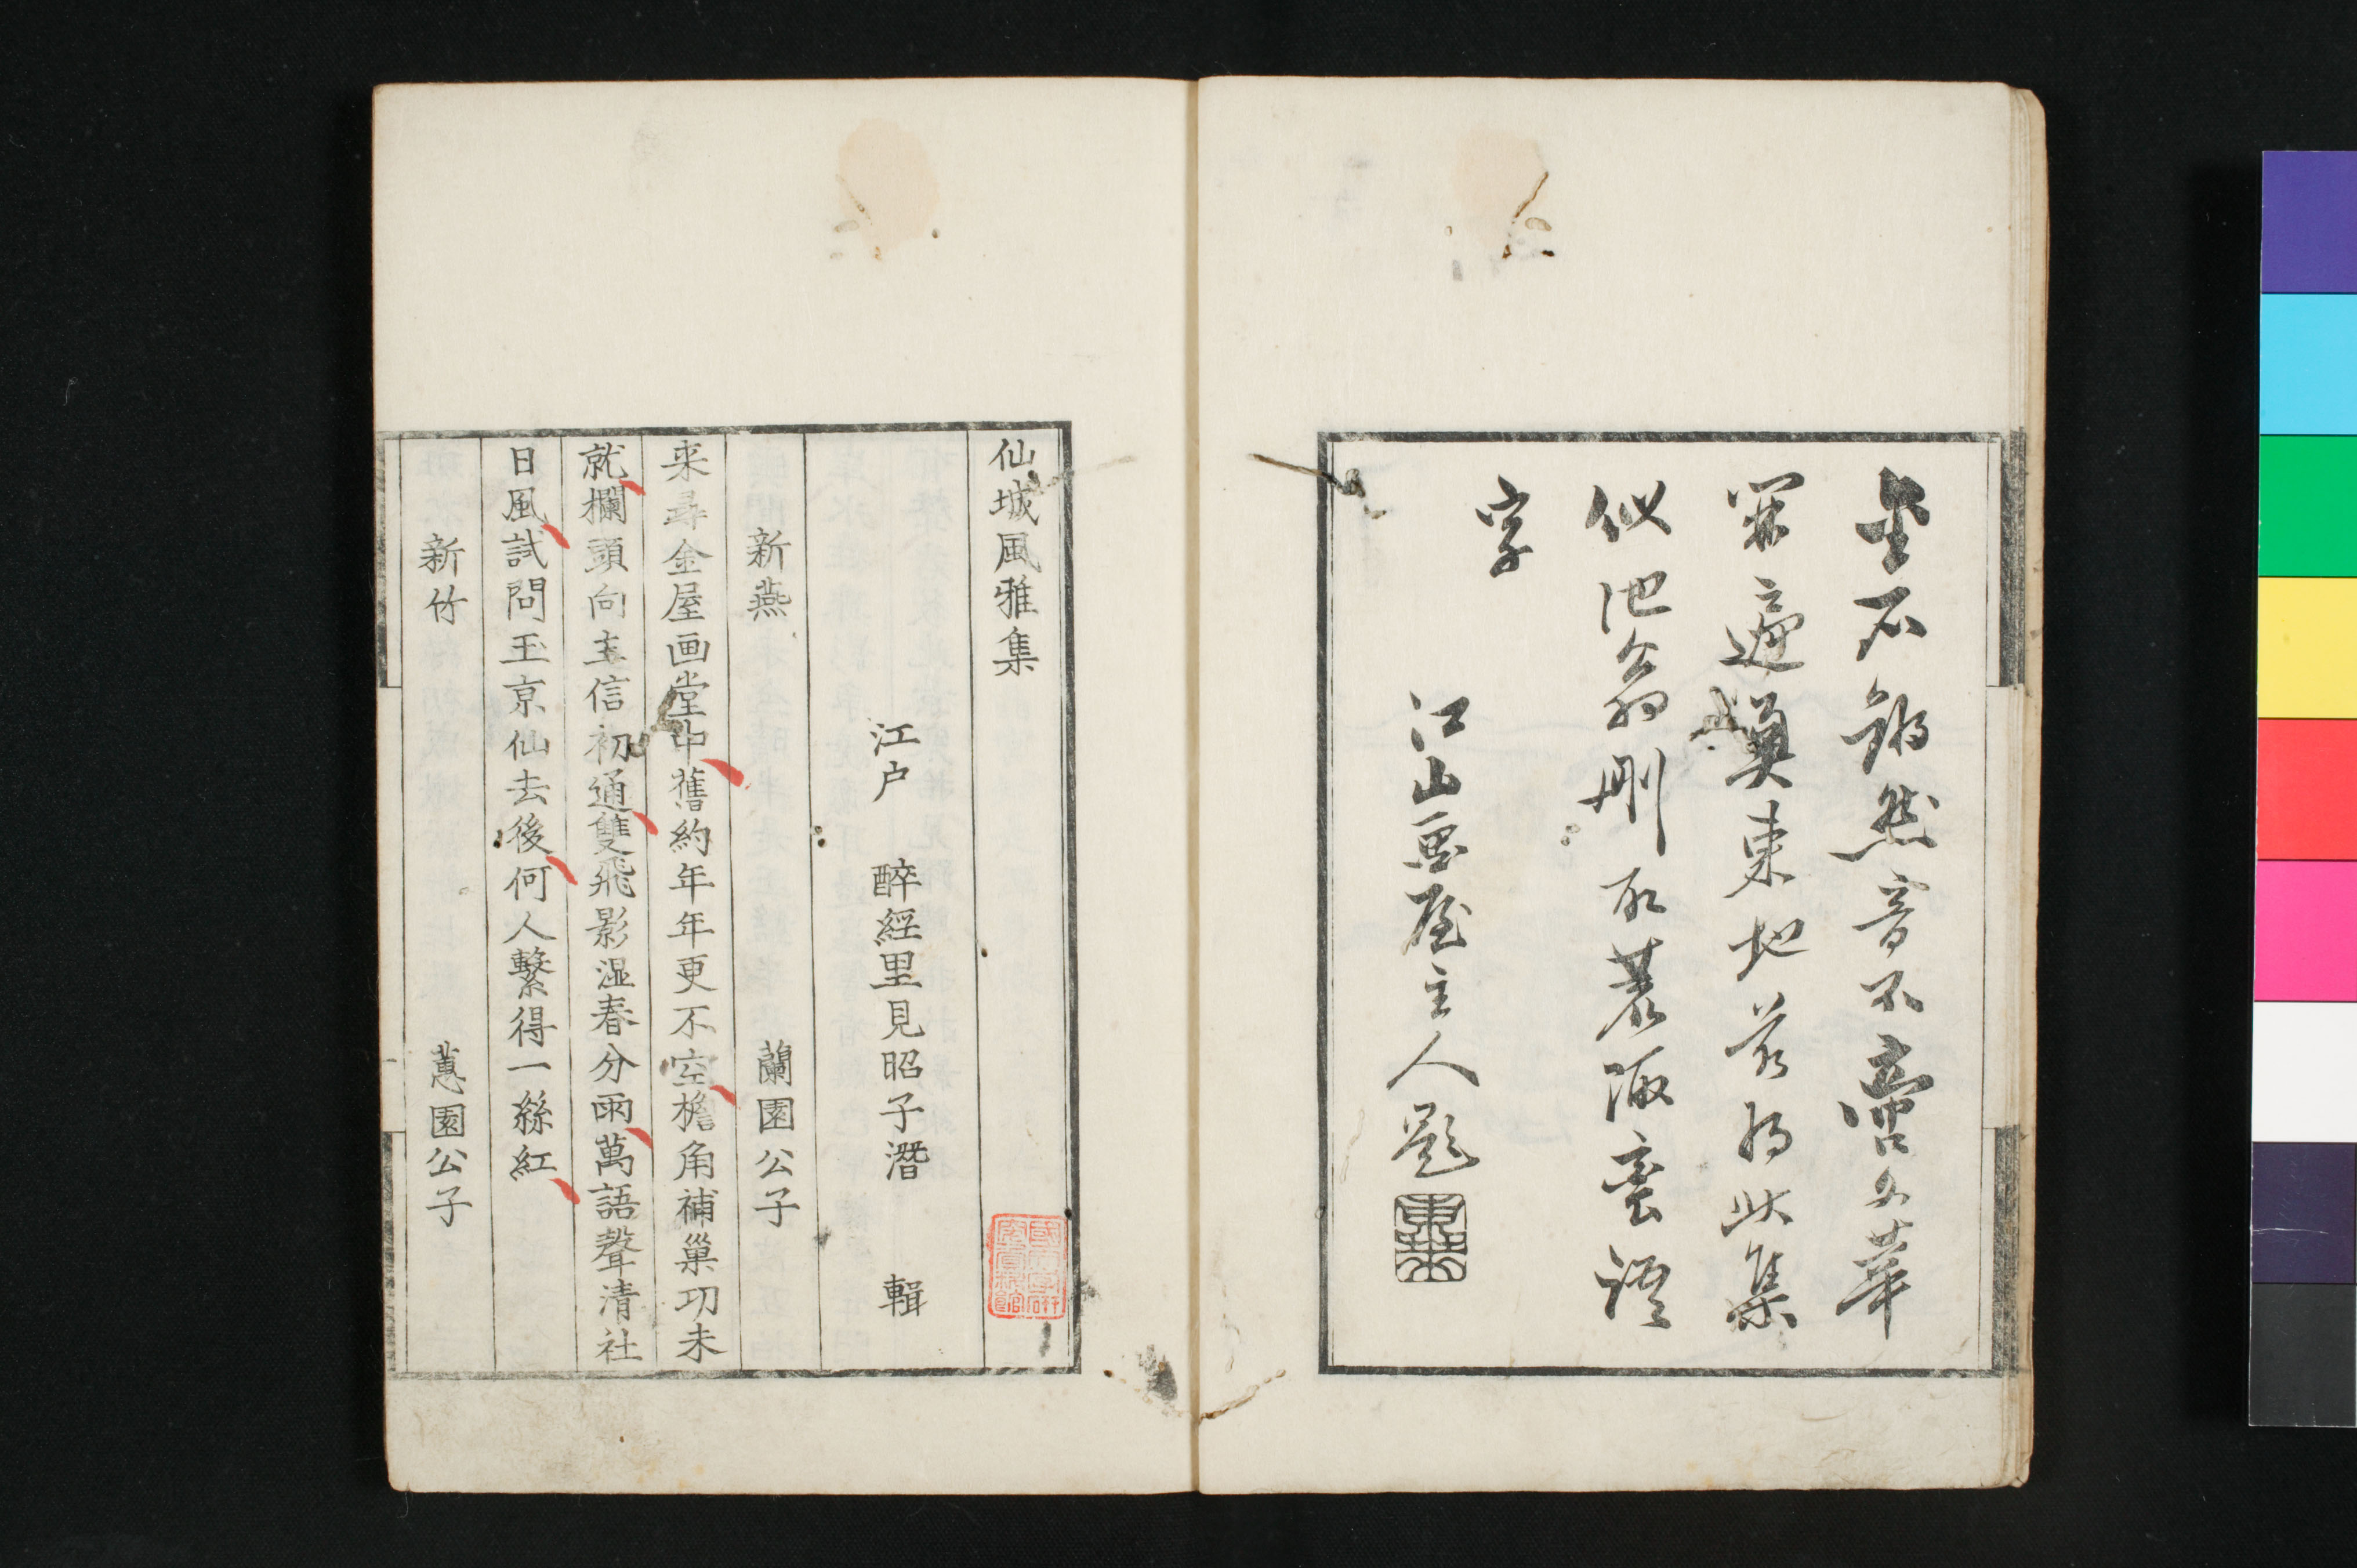 金石鏘然音不啻文華
開遍奥東地若将此集
似池翁刪取荒陬蛮語
字
江山画屋主人題
仙城風雅集
江戸 醉經里見昭子潛 輯
新燕 蘭園公子
来尋金屋画堂中舊約年年更不空檐角補巢功未
就欄頭向主信初通雙飛影湿春分雨萬語聲清社
日風試問玉京仙去後何人繫得一絲紅
新竹 蕙園公子